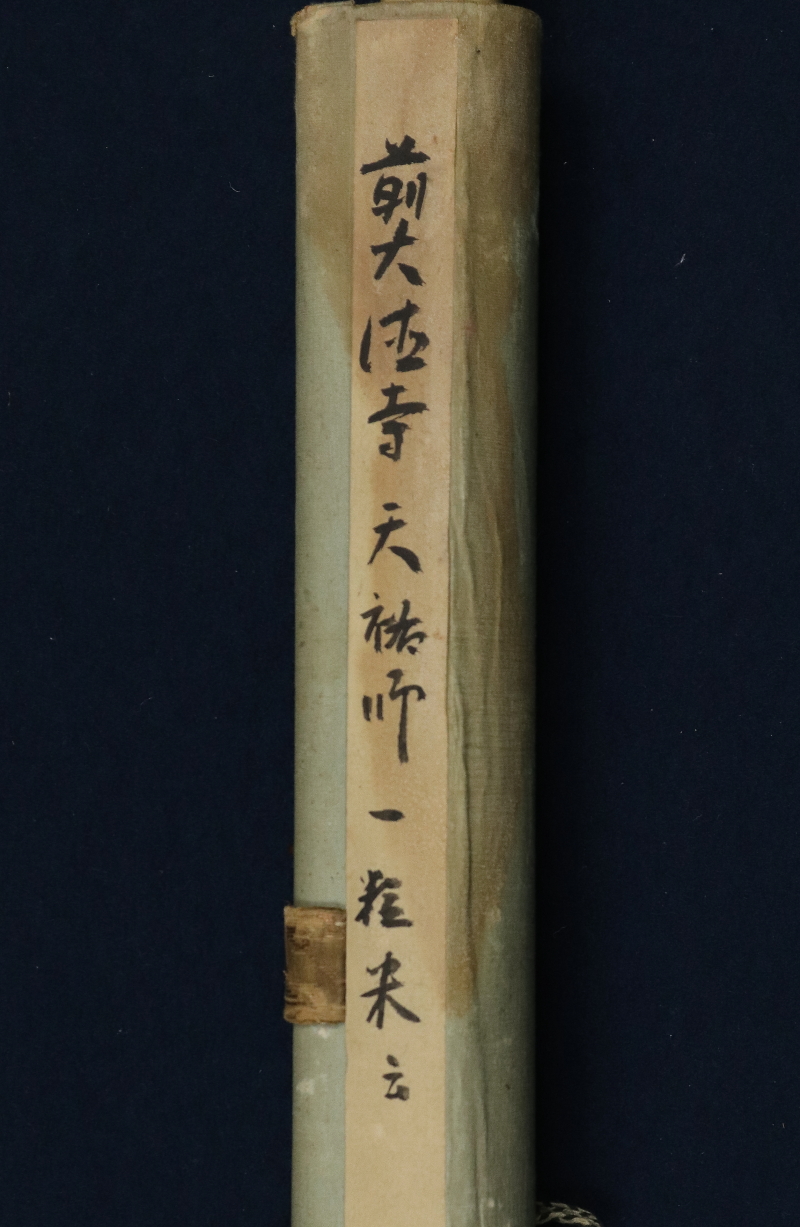 前大徳寺天祐師一粒米云